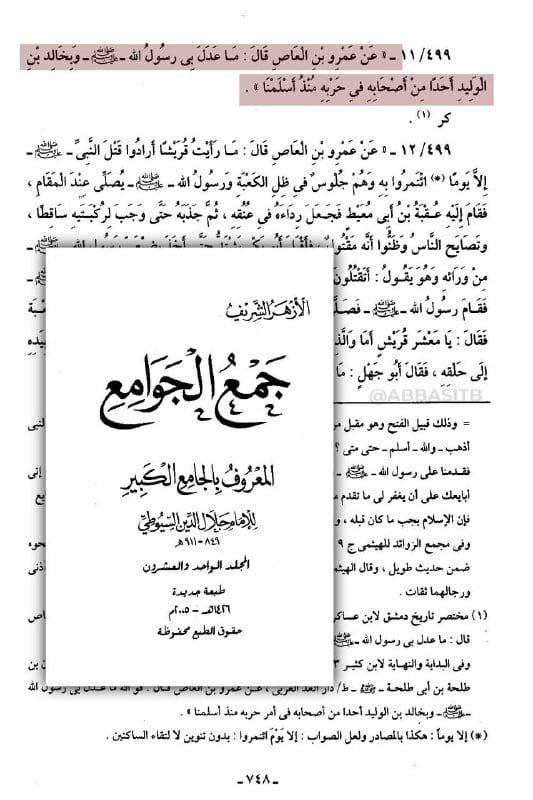 ١١/٤٩٩ ـ « عَنْ عَمْرِو بْنِ الْعَاصِ قَالَ : مَا عَدَلَ بِى رسُولُ الله ـ ﷺ ـ وَبِخَالِدِ بْنِ
الْوَلِيدِ أَحَدًا مِنْ أَصْحَابِهِ فِى حَرْبِهِ مُنْذُ أَسْلَمْنَا » .
كر (١) .
١٢/٤٩٩ ـ « عَنْ عَمْرِو بْنِ الْعَاصِ قَالَ : مَا رَأَيْتُ قُرَيْشًا أَرَادُوا قَتْلَ النَّبِىِّ ـ ﷺ ـ
إِلاَّ يَومًا (*) ائْتَمرُوا بِهِ وَهُمْ جُلُوسٌ فِى ظِلِ الكَعْبَةِ وَرَسُولُ الله ـ ﷺ ـ يُصَلِّى عِنْدَ الْمَقَامِ ،
فَقَامَ إِلَيْهِ عُقْبَةُ بْنُ أَبِى مُعَيْطٍ فَجَعَلَ رِدَاءَهُ فِى عُنُقِهِ ، ثُمَّ جَذَبَهُ حَتَّى وَجَبَ لِرُكْبَتَيْهِ سَاقِطًا ،
وَتَصَايَحَ النَّاسُ وَظَنُّوا أَنَّه مَقْتُولٌ
مِنْ وَرَائِهِ وَهُوَ يَقُولُ : أَتَقْتُلُونَ
فَقَامَ رَسُولُ الله ـ ﷺ ـ
فَقَالَ : يَا مَعْشَرَ قُرَيْشٍ أَمَا وَالَّذِى
إِلَى حَلْقِهِ ، فَقَالَ أَبُو جَهْلٍ : مَا
@ABBASITB
الأزهر الشريف
جَمْعُ الْجَوَامِعِ
المعروف بالجامع الكبير
للإمام جلال الدين السيوطي
٨٤٩ - ٩١١ هـ
المجلد الواحد والعشرون
طبعة جديدة
١٤٢٦هـ - ٢٠٠٥م
حقوق الطبع محفوظة
= وذلك قبيل الفتح وهو مقبل من
أذهب ـ والله ـ أسلم ـ حتى متى ؟
فقدمنا على رسول الله ـ ﷺ ـ
أبايعك على أن يغفر لى ما تقدم
فإن الإسلام يجب ما كان قبله ،
وفى مجمع الزوائد للهيثمى ج ٩
ضمن حديث طويل ، وقال الهيثمى
ورجالهما ثقات .
(١) مختصر تاريخ دمشق لابن عساكر
قال : ما عدل بى رسول الله ـ ﷺ ـ
وفى البداية والنهاية لابن كثير
طلحة بن أبى طلحة ـ ـ ط/ دار الغد العربى ، عن عمرو بن العاص قال : فو الله ما عدل بى رسول الله
ـ ﷺ ـ وبخالد بن الوليد أحدا من أصحابه فى أمر حربه منذ أسلمنا » .
(*) إلا يوماً : هكذا بالمصادر ولعل الصواب : إلا يَوْمَ ائتمروا : بدون تنوين لا لتقاء الساكنين .
ـ ٧٤٨ ـ